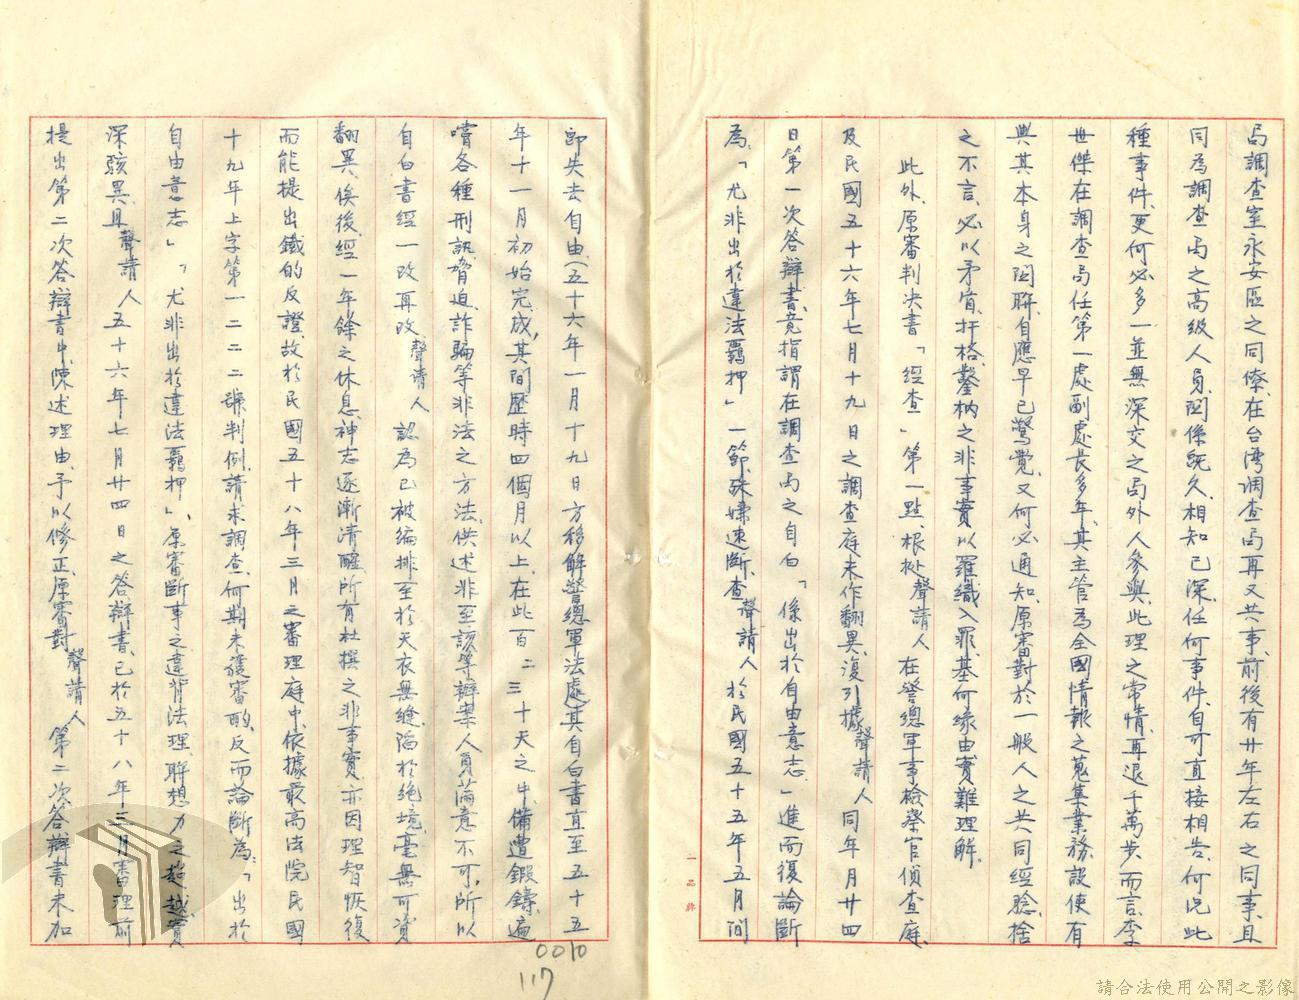 局調查室永安區之同僚、在台湾調查局再又共事、前後有廿年左右之同事、且
同為調查局之高級人員、関係既久、相知已深、任何事件、自可直接相告、何况此
種事件、更何必多一並無深交之局外人參與、此理之常情、再退千萬步而言、李
世傑在調查局任第一處副處長多年、其主管為全國情報之蒐集業務、設使有
與其本身之関聯、自應早已驚覺、又何必通知、原審對於一般人之共同經驗、捨
之不言、必以矛盾、扞格、鑿枘之非事實以羅織入罪、基何緣由實難理解。
此外、原審判决書「經查」第一點、根據聲請人在警總軍事檢察官偵查庭、
及民國五十六年七月十九日之調查庭未作翻異、復引據聲請人同年月廿四
日第一次答辯書、竟指謂在調查局之自白「係出於自由意志」進而復論斷
為、「尤非出於違法羈押」一節殊嫌速斷、查聲請人於民國五十五年五月間
即失去自由、(五十六年一月十九日方移解警總軍法處)其自白書直至五十五
年十一月初始完成、其間歷時四個月以上、在此百二三十天之中、備遭鍛鑄、遍
嚐各種刑訊、脅迫、詐騙等非法之方法、供述非至該等辦案人員滿意不可、所以
自白書經一改再改、聲請人認為已被編排至於天衣無縫、陷於絕境、毫無可資
翻異、俟後、經一年餘之休息、神志逐漸清醒、所有杜撰之非事實、亦因理智恢復
而能提出鐵的反證、故於民國五十八年三月之審理庭中、依據最高法院民國
十九年上字第一二二二號判例、請求調查、何期未獲審酌、反而論斷為、「出於
自由意志」「尤非出於違法羈押」、原審斷事之違背法理、聯想力之超越、實
深駭異、且聲請人五十六年七月廿四日之答辯書、已於五十八年三月審理前
提出第二次答辯書中、陳述理由、予以修正、原審對聲請人第二次答辯書未加
0010
117
一品牌
請合法使用公開之影像